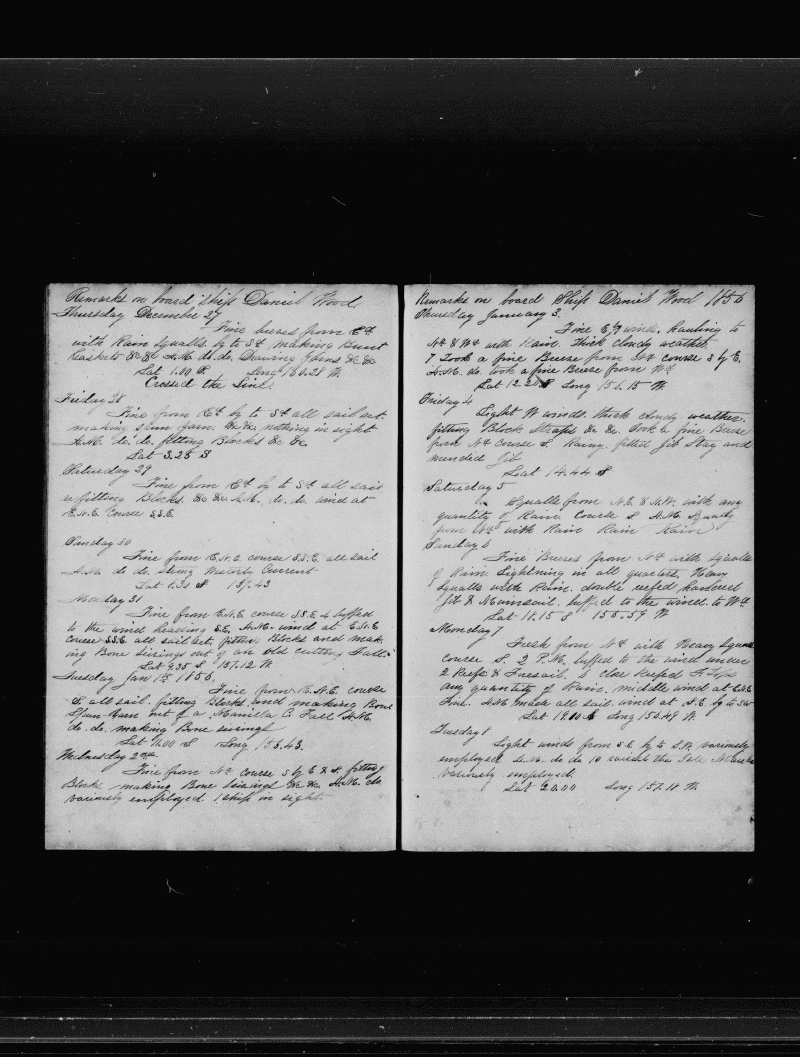 Remarks on board Ship Daniel Wood
Thursday December 27
Fine breses from Ed
with Rain Squalls by to Sd making Bunt
Gaskets &c &c A.M. do. do. Drawing Yarns &c &c
Lat 1.00 Long 160.28 W.
Crossed the Line
Friday 28
Fine from Ed by to Sd all sail set.
making spun yarn. &c &c nothing in sight
A.M. do. do. fitting Blocks &c &c.
Lat 3.25 S
Saturday 29
Fine from Ed by to Sd all sail
fitting Blocks. &c &c A.M. do. do. wind at
E.N.E. Course S.S.E.
Sunday 30
Fine from E.N.E. course S.S.E. all sail
A.M. do do. strong Current
Lat S 157.43
Monday 31
Fine from E.N.E course S.S.E 4 luffed
to the wind heading S.E. A.M. wind at E.N.E
course S.S.E. all sail set. fitting Blocks and mak-
ing Bone seizings out of an old cutting Fall.
Lat 9.35 S 157.12 W.
Tuesday Jan 1st 1856,
Fine from E.N.E. course
S. all sail. fitting Blocks. and making Bone
Spun Yarn out of a Manilla C. Fall A.M.
do. do. making Bone seizings
Lat 11.00 S Long 156.43.
Wednesday 2nd
Fine from Nd course S by E & S. fitting
Blocks making Bone Seizings &c &c. A.M. do
variously employed. 1 ship in sight.
Remarks on board Ship Daniel Wood 1856
Thursday January 3.
Fine winds, hauling to
Nd & Wd with Rain. Thick cloudy weather.
7 Took a fine Breeze from Nd course S by E.
A.M. do. took a fine Breeze from Wd
Lat 12.20 S Long 156.15 W.
Friday 4
Light W winds. thick cloudy weather.
fitting Block Straps &c &c. Took a fine Breeze
from Nd Course S. Rainy. fitted Jib Stay and
mended Jib
Lat 14.44 S
Saturday 5
Squalls from N.E & N.W. with any
quantity of Rain. Course S A.M. Squally
from Wd with Rain Rain Rain
Sunday 6
Fine Breeses from Nd with squalls
of Rain. Lightning in all quarters, Heavy
Squalls with Rain. double reefed
Jib & Mainsail. luffed to the wind. to Wd
Lat 17.15 S 156.59 W
Monday 7
Fresh from Nd with Heavy Squalls
course S. 2 P.M. luffed to the wind under
2 Reefs & Foresail. to close Reefed
any quantity of Rain. middle wind at E.N.E
Fine. A.M. made all sail. wind at S.E. by to SW
Lat 18 S Long 156.49 W
Tuesday 8
Light winds from S.E. by to S.W. variously
employed. A.M. do do
variously employed.
Lat 20.00 Long 157.10 W.